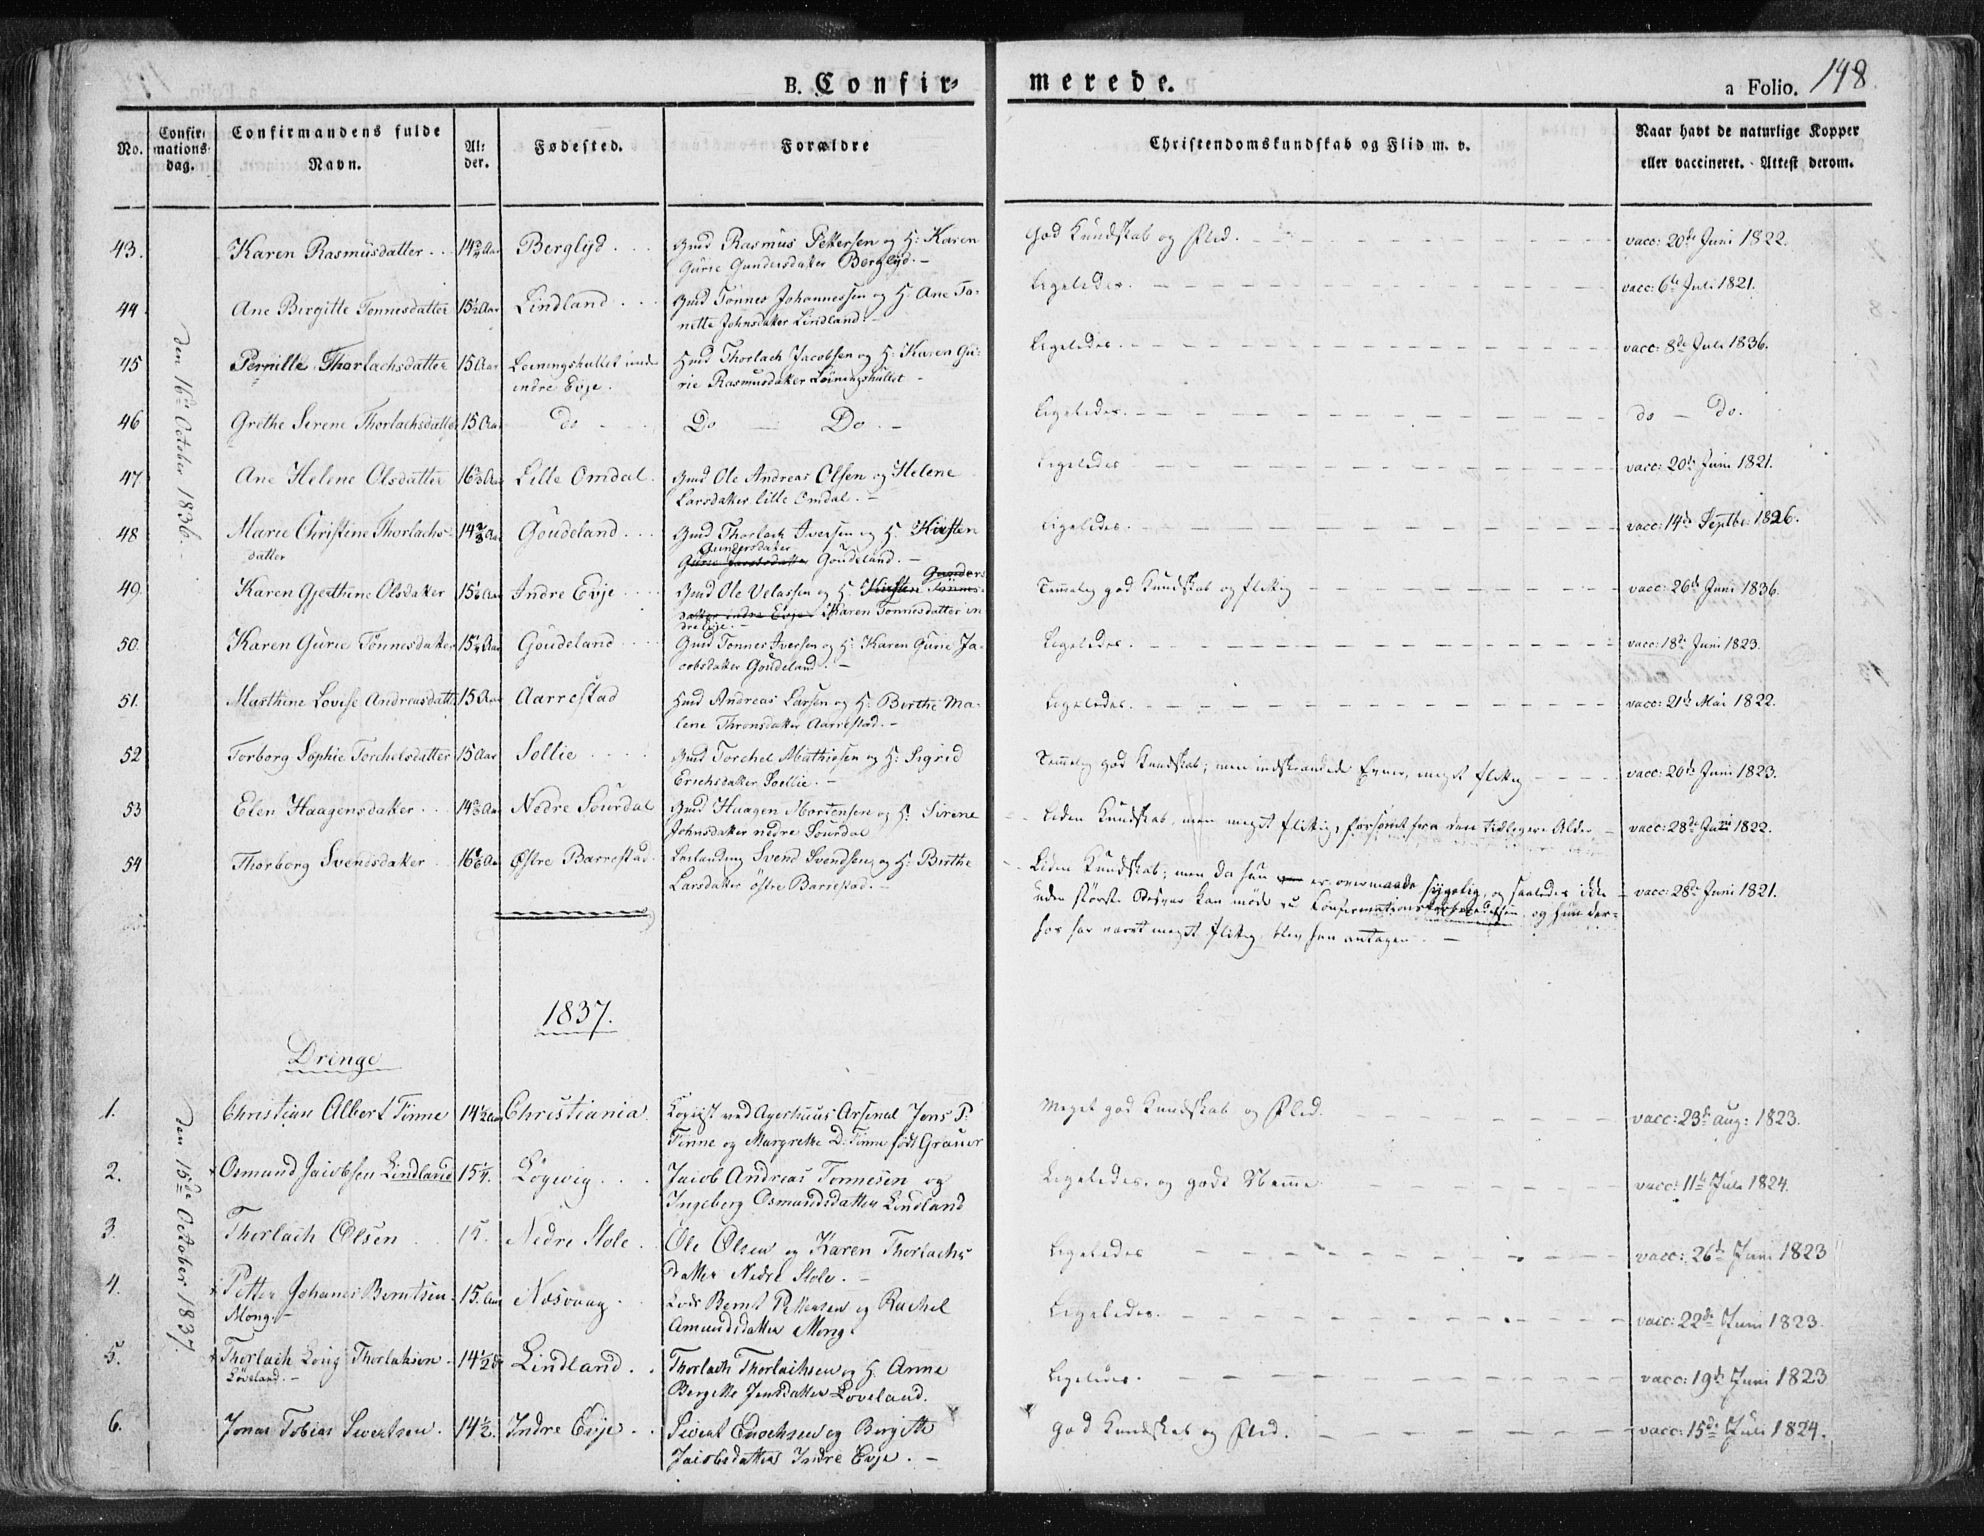 B. Confir-
merede.
a Folio. 148
No.
Confir-
mations-
dag.
Confirmandens fulde
Navn.
Al-
der.
Fødested.
Forældre
Christendomskundskab og Flid m. v.
Naar havt de naturlige Kopper
eller vaccineret. Attest derom.
den 16de October 1836.
43. Karen Rasmusdatter 14 Aar Berglyd. Gmd Rasmus Pettersen og H: Karen God Kundskab og Flid. vacc: 20de Juni 1822.
Gurie Gundersdatter Berglyd.
44 Ane Birgitte Tønnesdatter 15½ Aar Lindland Gmd Tønnes Johannessen og H: Ane To- Ligeledes. vacc: 6te Juli 1821.
nette Johnsdatter Lindland.
45 Pernille Thorlachsdatter 15 Aar Løiningshullet under Hmd Thorlach Jacobsen og H: Karen Gu- Ligeledes. vacc: 8de Juli 1836.
indre Evje. rie Rasmusdatter Løiningshullet
46 Grethe Serene Thorlachsdatter 15 Aar do Do Do. Ligeledes. do do.
47 Ane Helene Olsdatter 16 Aar Lille Omdal. Gmd Ole Andreas Olsen og Helene Ligeledes vacc: 20de Juni 1821.
Larsdatter lille Omdal.
48 Marie Christine Thorlachs- 14 Aar Goudeland Gmd Thorlach Iversen og H. Kirsten Ligeledes. vacc: 14de Septbr: 1826.
datter Gundersdatter
Goudeland.
49 Karen Gjerthine Olsdatter 15 Aar Indre Evje Gmd Ole Velassen og H. Kirsten Tønnes- Temmelig god Kundskab og flittig vacc: 26de Juni 1836.
datter indre Evje Karen Tonnesdatter in
dre Evje.
50. Karen Gurie Tönnesdatter 15¼ Aar Goudeland Gmd Tonnes Iversen og H: Karen Gurie Ja- Ligeledes. vacc: 18de Juni 1823.
cobsdatter Goudeland.
51. Marthine Lovise Andreasdatt. 15 Aar Aarrestad Hmd Andreas Larsen og H: Berthe Ma- Ligeledes. vacc: 21de Mai 1822.
lene Thronsdatter Aarrestad.
52 Torborg Sophie Torchelsdatter 15 Aar Sollie Gmd Torchel Mathiesen og H: Sigrid Temmelig god Kundskab; men indskrænkede Evner, meget flittig vacc: 20de Juni 1823.
Erichsdatter Sollie.
53 Elen Haagensdatter 14 Aar Nedre Sourdal Gmd Haagen Mortensen og H: Sirene Liden Kundskab, men meget flittig, forsømt fra den tidligere Alder vacc: 28de Juni 1822.
Johnsdatter nedre Sourdal
54 Thorborg Svendsdatter 16 Aar Østre Barrestad. Svend Svendsen, og H: Birthe Liden Kundskab; men da hun er overmaade sygelig, og saaledes ikke vacc: 28de Juni 1821.
Larsdatter östre Barrestad. uden störste Besvær kan møde til Confirmationsforberedelsen, og hun der-
hos har været meget flittig, blev hun antagen.
1837.
Drenge
den 15de October 1837.
1. Christian Albert Finne 14½ Aar Christiania. Copiist ved Agerhuus Arsenal Jens P: Meget god Kundskab og Flid. vacc: 23de Aug: 1823.
Finne og Margrethe D. Finne födt Grauer
2. Osmund Jacobsen Lindland 15¼. Løgwig Jacob Andreas Tonnesen og Ligeledes, og gode Nemme vacc: 11te Juli 1824.
Ingeborg Osmundsdatter Lindland
3. Thorlach Olsen 15. Nedre Stole Ole Olsen og Karen Thorlachs Ligeledes vacc: 26de Juni 1823
datter Nedre Stole.
4. Petter Johanes Berntsen 15. Aar Nesvaag Lods Bernt Pettersen og Rachel Ligeledes. vacc: 22de Juni 1823.
Mong. Amundsdatter Mong.
5. Thorlach Thorlaksen 14½ Lindland Thorlach Thorlachsen og H. Anne Ligeledes. vacc: 19de Juni 1823
Loveland. Bergitte Jensdatter Loveland.
6. Jonas Tobias Sivertsen 14½. Indre Evje Sivert Enochsen og Bergitte God Kundskab og Flid. vacc: 15de Juli 1824.
Jacobsdatter Indre Evje.